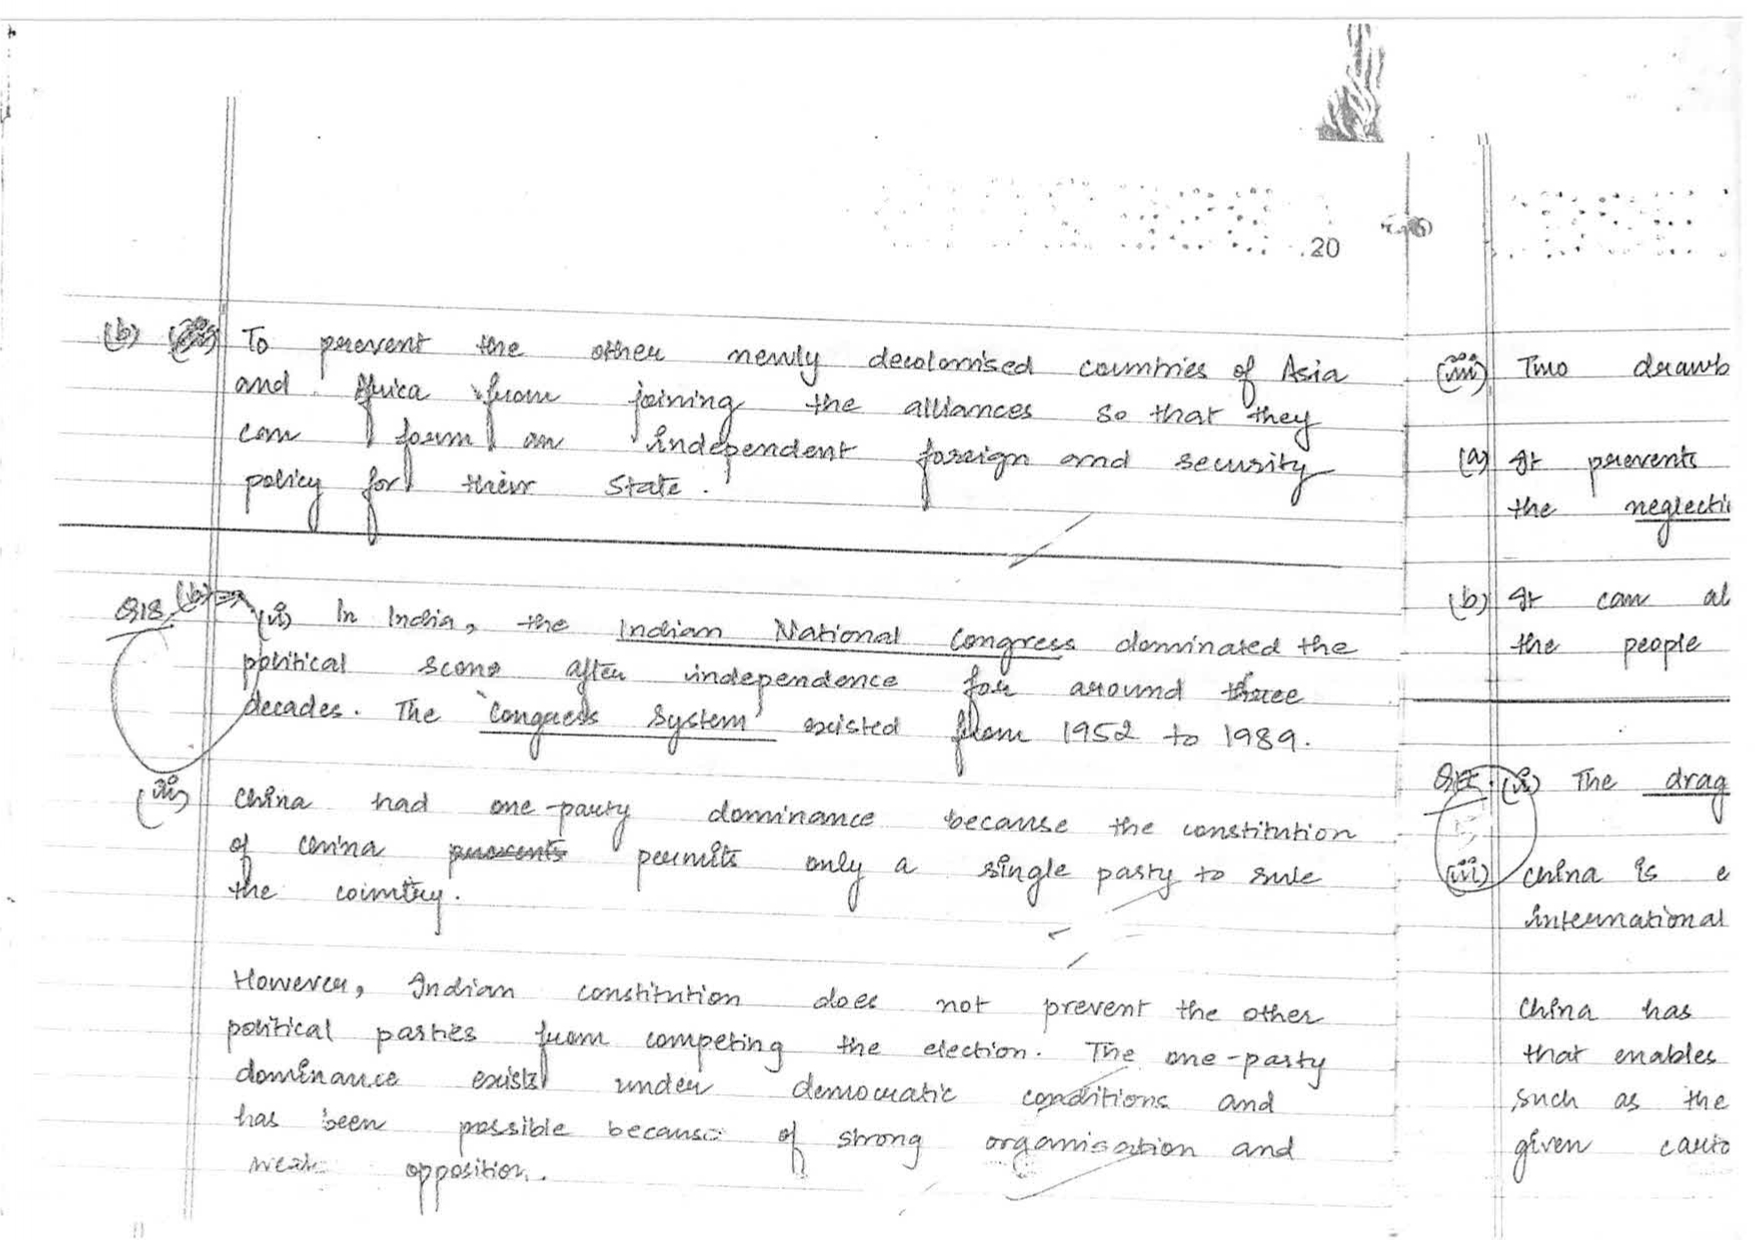 20
(b) To prevent the other newly decolonised countries of Asia
and Africa from joining the alliances so that they
can form an independent foreign and security
policy for their state.
Q18. (b) (i) In India, the Indian National Congress dominated the
political scene after independence for around three
decades. The 'Congress System' existed from 1952 to 1989.
(ii) China had one-party dominance because the constitution
of China prevents permits only a single party to rule
the country.
However, Indian constitution does not prevent the other
political parties from competing the election. The one-party
dominance exists under democratic conditions and
has been possible because of strong organisation and
weak opposition.
(iii) Two drawb
(a) It prevents
the neglecti
(b) It can al
the people
(i) The drag
(ii) China is e
international
China has
that enables
such as the
given cauto